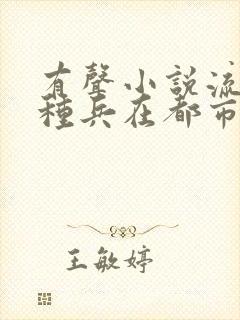 有聲小說流
種兵在都市
王敏婷